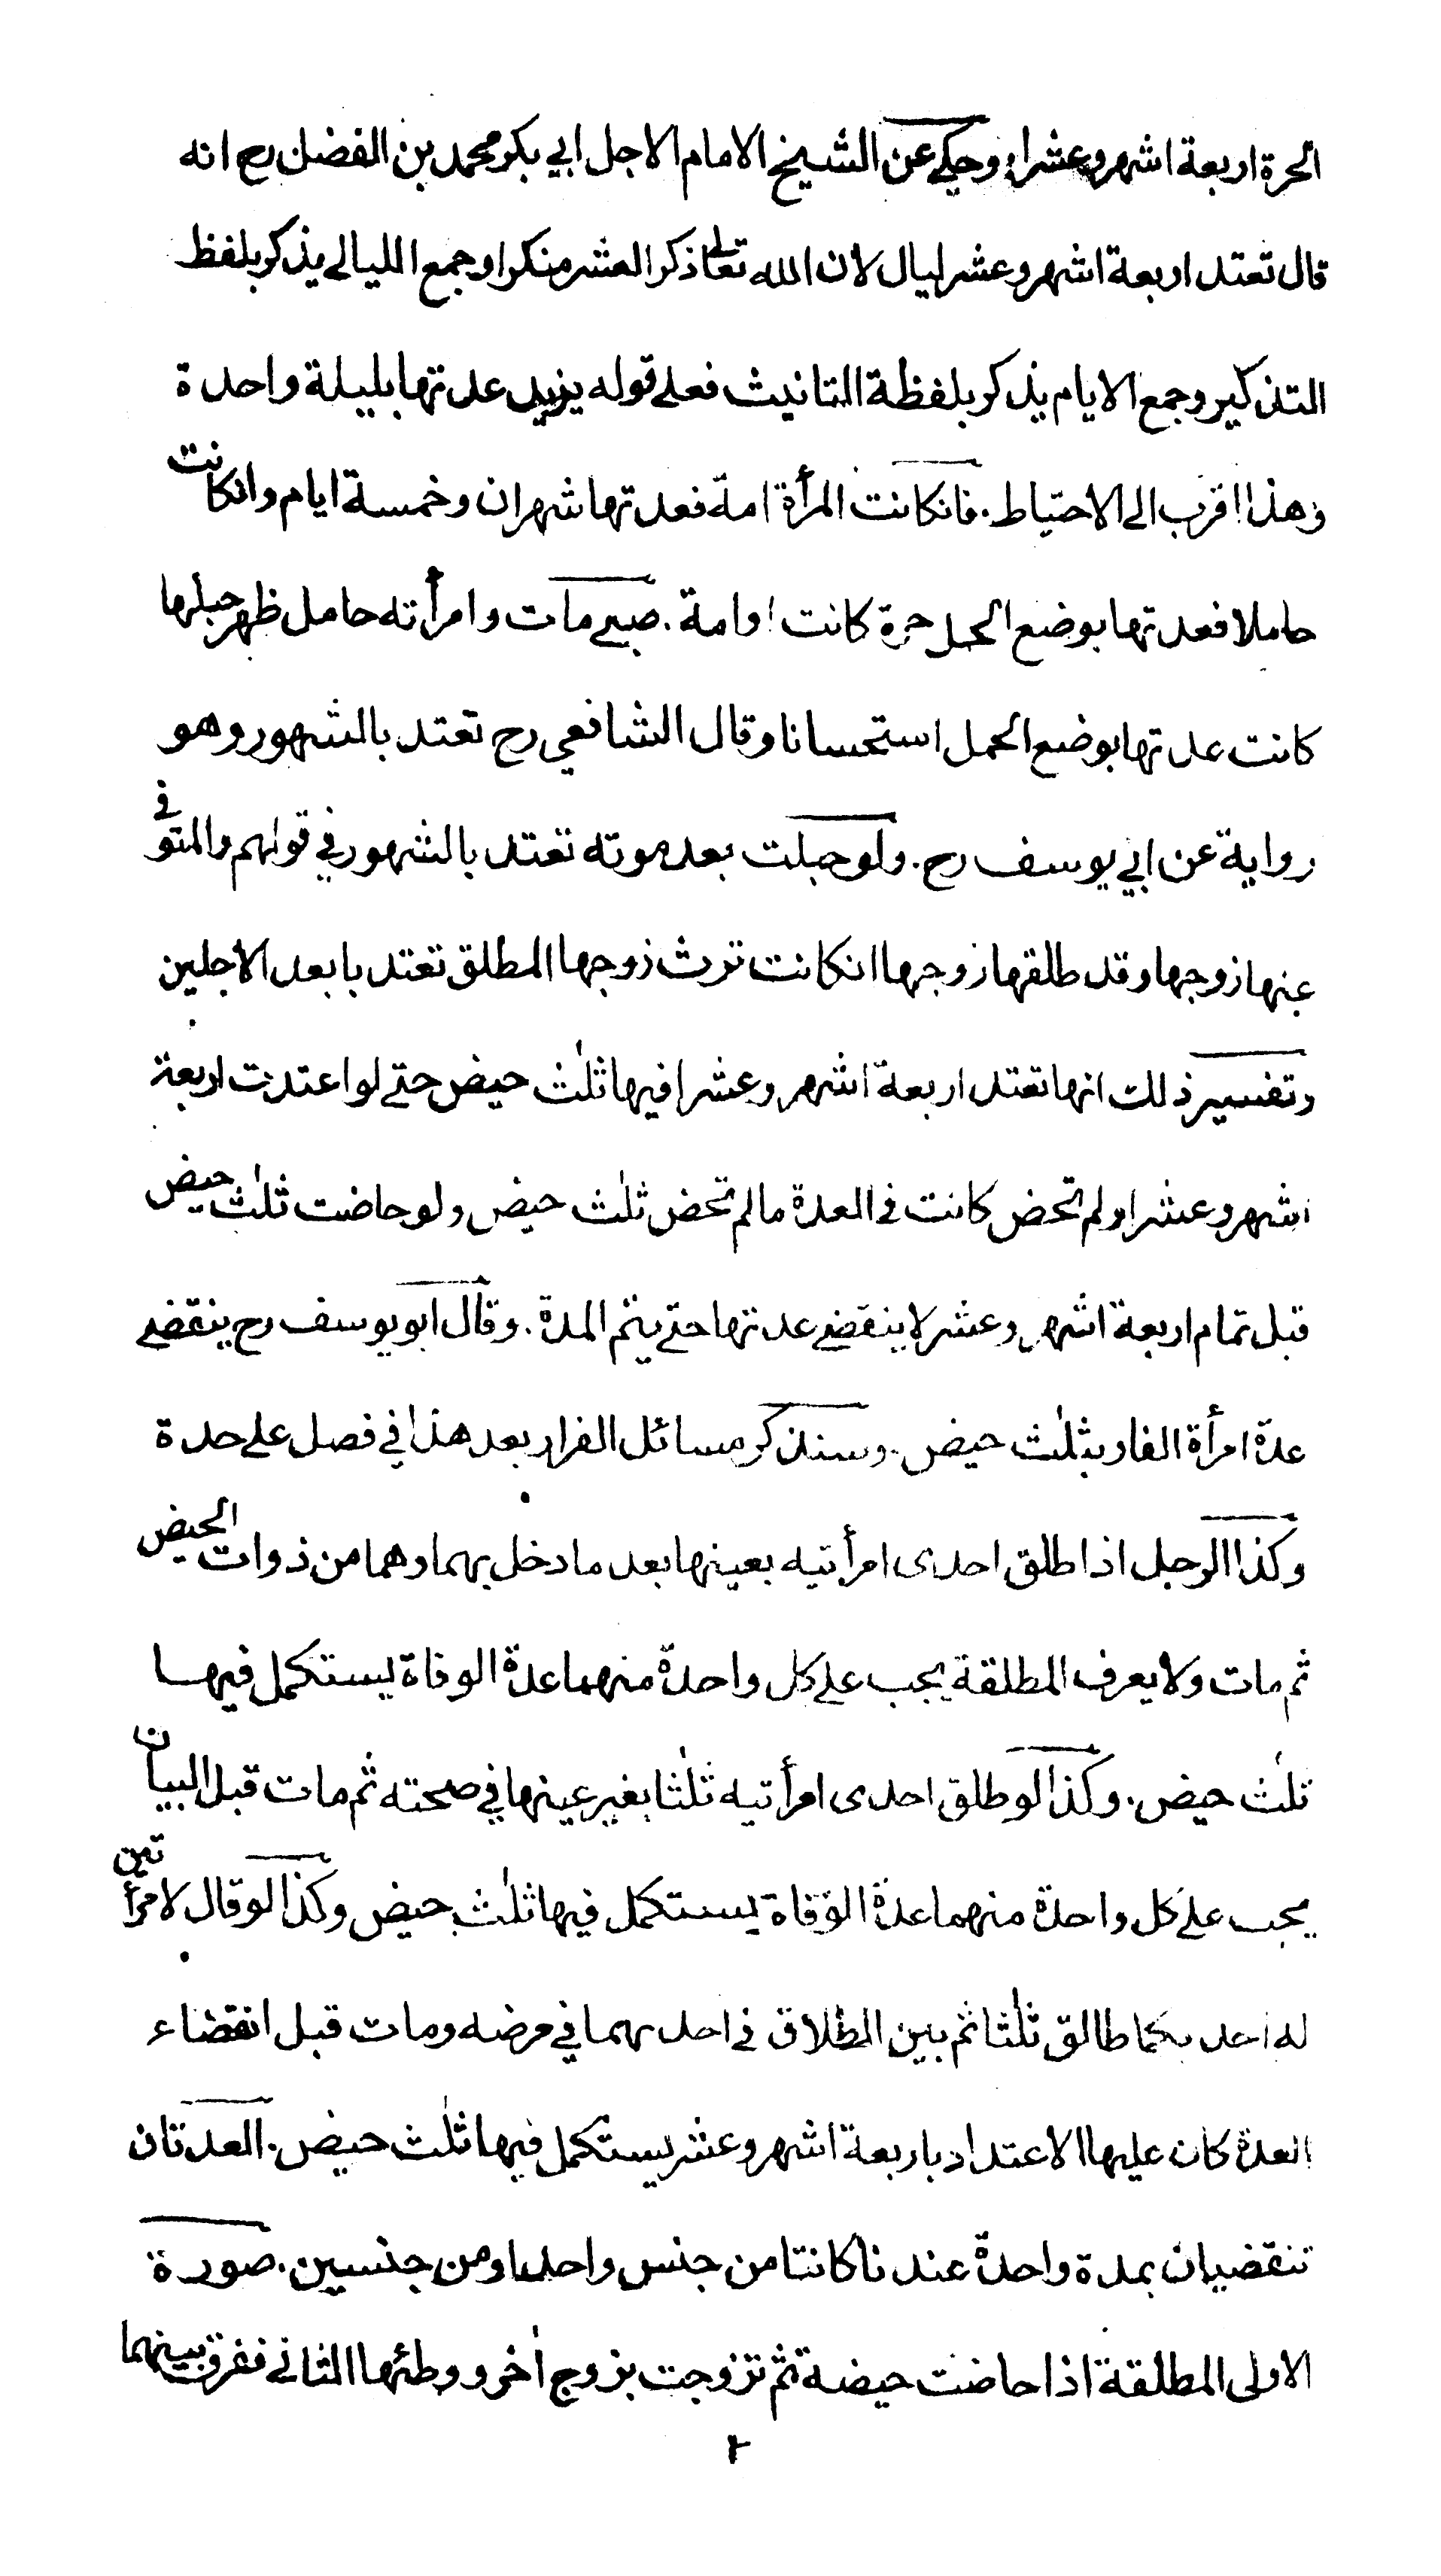 الحرة اربعة اشهر وعشرا. وحكي عن الشيخ الامام الاجل ابي بكر محمد بن الفضل رح انه
قال تعتد اربعة اشهر وعشر ليال لان الله تعالى ذكر العشر منكرا وجمع الليالي يذكر بلفظ
التذكير وجمع الايام يذكر بلفظة التانيث فعلى قوله يزيد عدتها بليلة واحدة
وهذا اقرب الى الاحتياط. فانكانت المرأة امة فعدتها شهران وخمسة ايام وانكانت
حاملا فعدتها بوضع الحمل حرة كانت اوامة. صبي مات وامرأته حامل ظهر حبلها
كانت عدتها بوضع الحمل استحسانا وقال الشافعي رح تعتد بالشهور وهو
رواية عن ابي يوسف رح. ولو حبلت بعد موته تعتد بالشهور في قولهم والمتوفى
عنها زوجها وقد طلقها زوجها انكانت ترث زوجها المطلق تعتد بابعد الاجلين
وتفسير ذلك انها تعتد اربعة اشهر وعشرا فيها ثلٰث حيض حتى لو اعتدت اربعة
اشهر وعشرا ولم تحض كانت في العدة مالم تحض ثلٰث حيض ولو حاضت ثلٰث حيض
قبل تمام اربعة اشهر وعشر لا ينقضي عدتها حتى يتم المدة. وقال ابو يوسف رح ينقضي
عدة امرأة الفار بثلٰث حيض. وسنذكر مسائل الفرار بعد هذا في فصل على حدة
وكذا الرجل اذا طلق احدى امرأتيه بعينها بعد ما دخل بهما وهما من ذوات الحيض
ثم مات ولا يعرف المطلقة يجب على كل واحدة منهما عدة الوفاة يستكمل فيها
ثلٰث حيض. وكذا لو طلق احدى امرأتيه ثلٰثا بغير عينها في صحته ثم مات قبل البيان
يجب على كل واحدة منهما عدة الوفاة يستكمل فيها ثلٰث حيض وكذا لو قال لامرأتين
له احد يكما طالق ثلٰثا ثم بين الطلاق في احد يهما في مرضه ومات قبل انقضاء
العدة كان عليها الاعتداد باربعة اشهر وعشر يستكمل فيها ثلٰث حيض. العدتان
تنقضيان بمدة واحدة عندنا كانتا من جنس واحد اومن جنسين. صورة
الاولى المطلقة اذا حاضت حيضة ثم تزوجت بزوج اٰخر ووطئها الثاني ففرق بينهما
٢